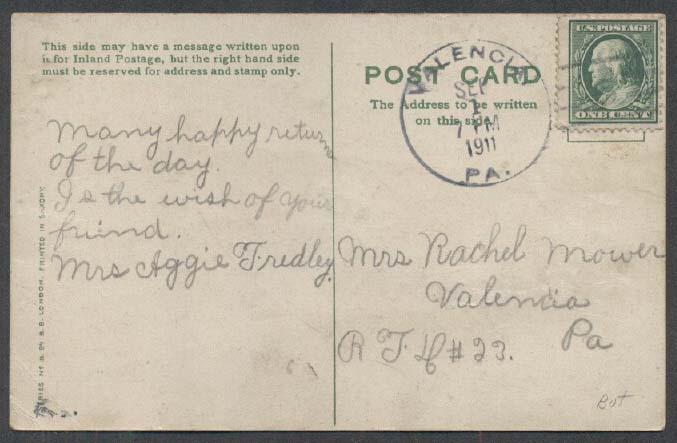 This side may have a message written upon
it for Inland Postage, but the right hand side
must be reserved for address and stamp only.
Many happy return
of the day.
Is the wish of your
friend.
Mrs Aggie Fredley
PRINTED IN SAXONY.
LONDON.
POST CARD
The Address to be written
on this side.
VALENCIA
SEP
1
7 PM
1911
PA.
U.S. POSTAGE
ONE CENT
Mrs Rachel Mower
Valencia
Pa
R F D #23.